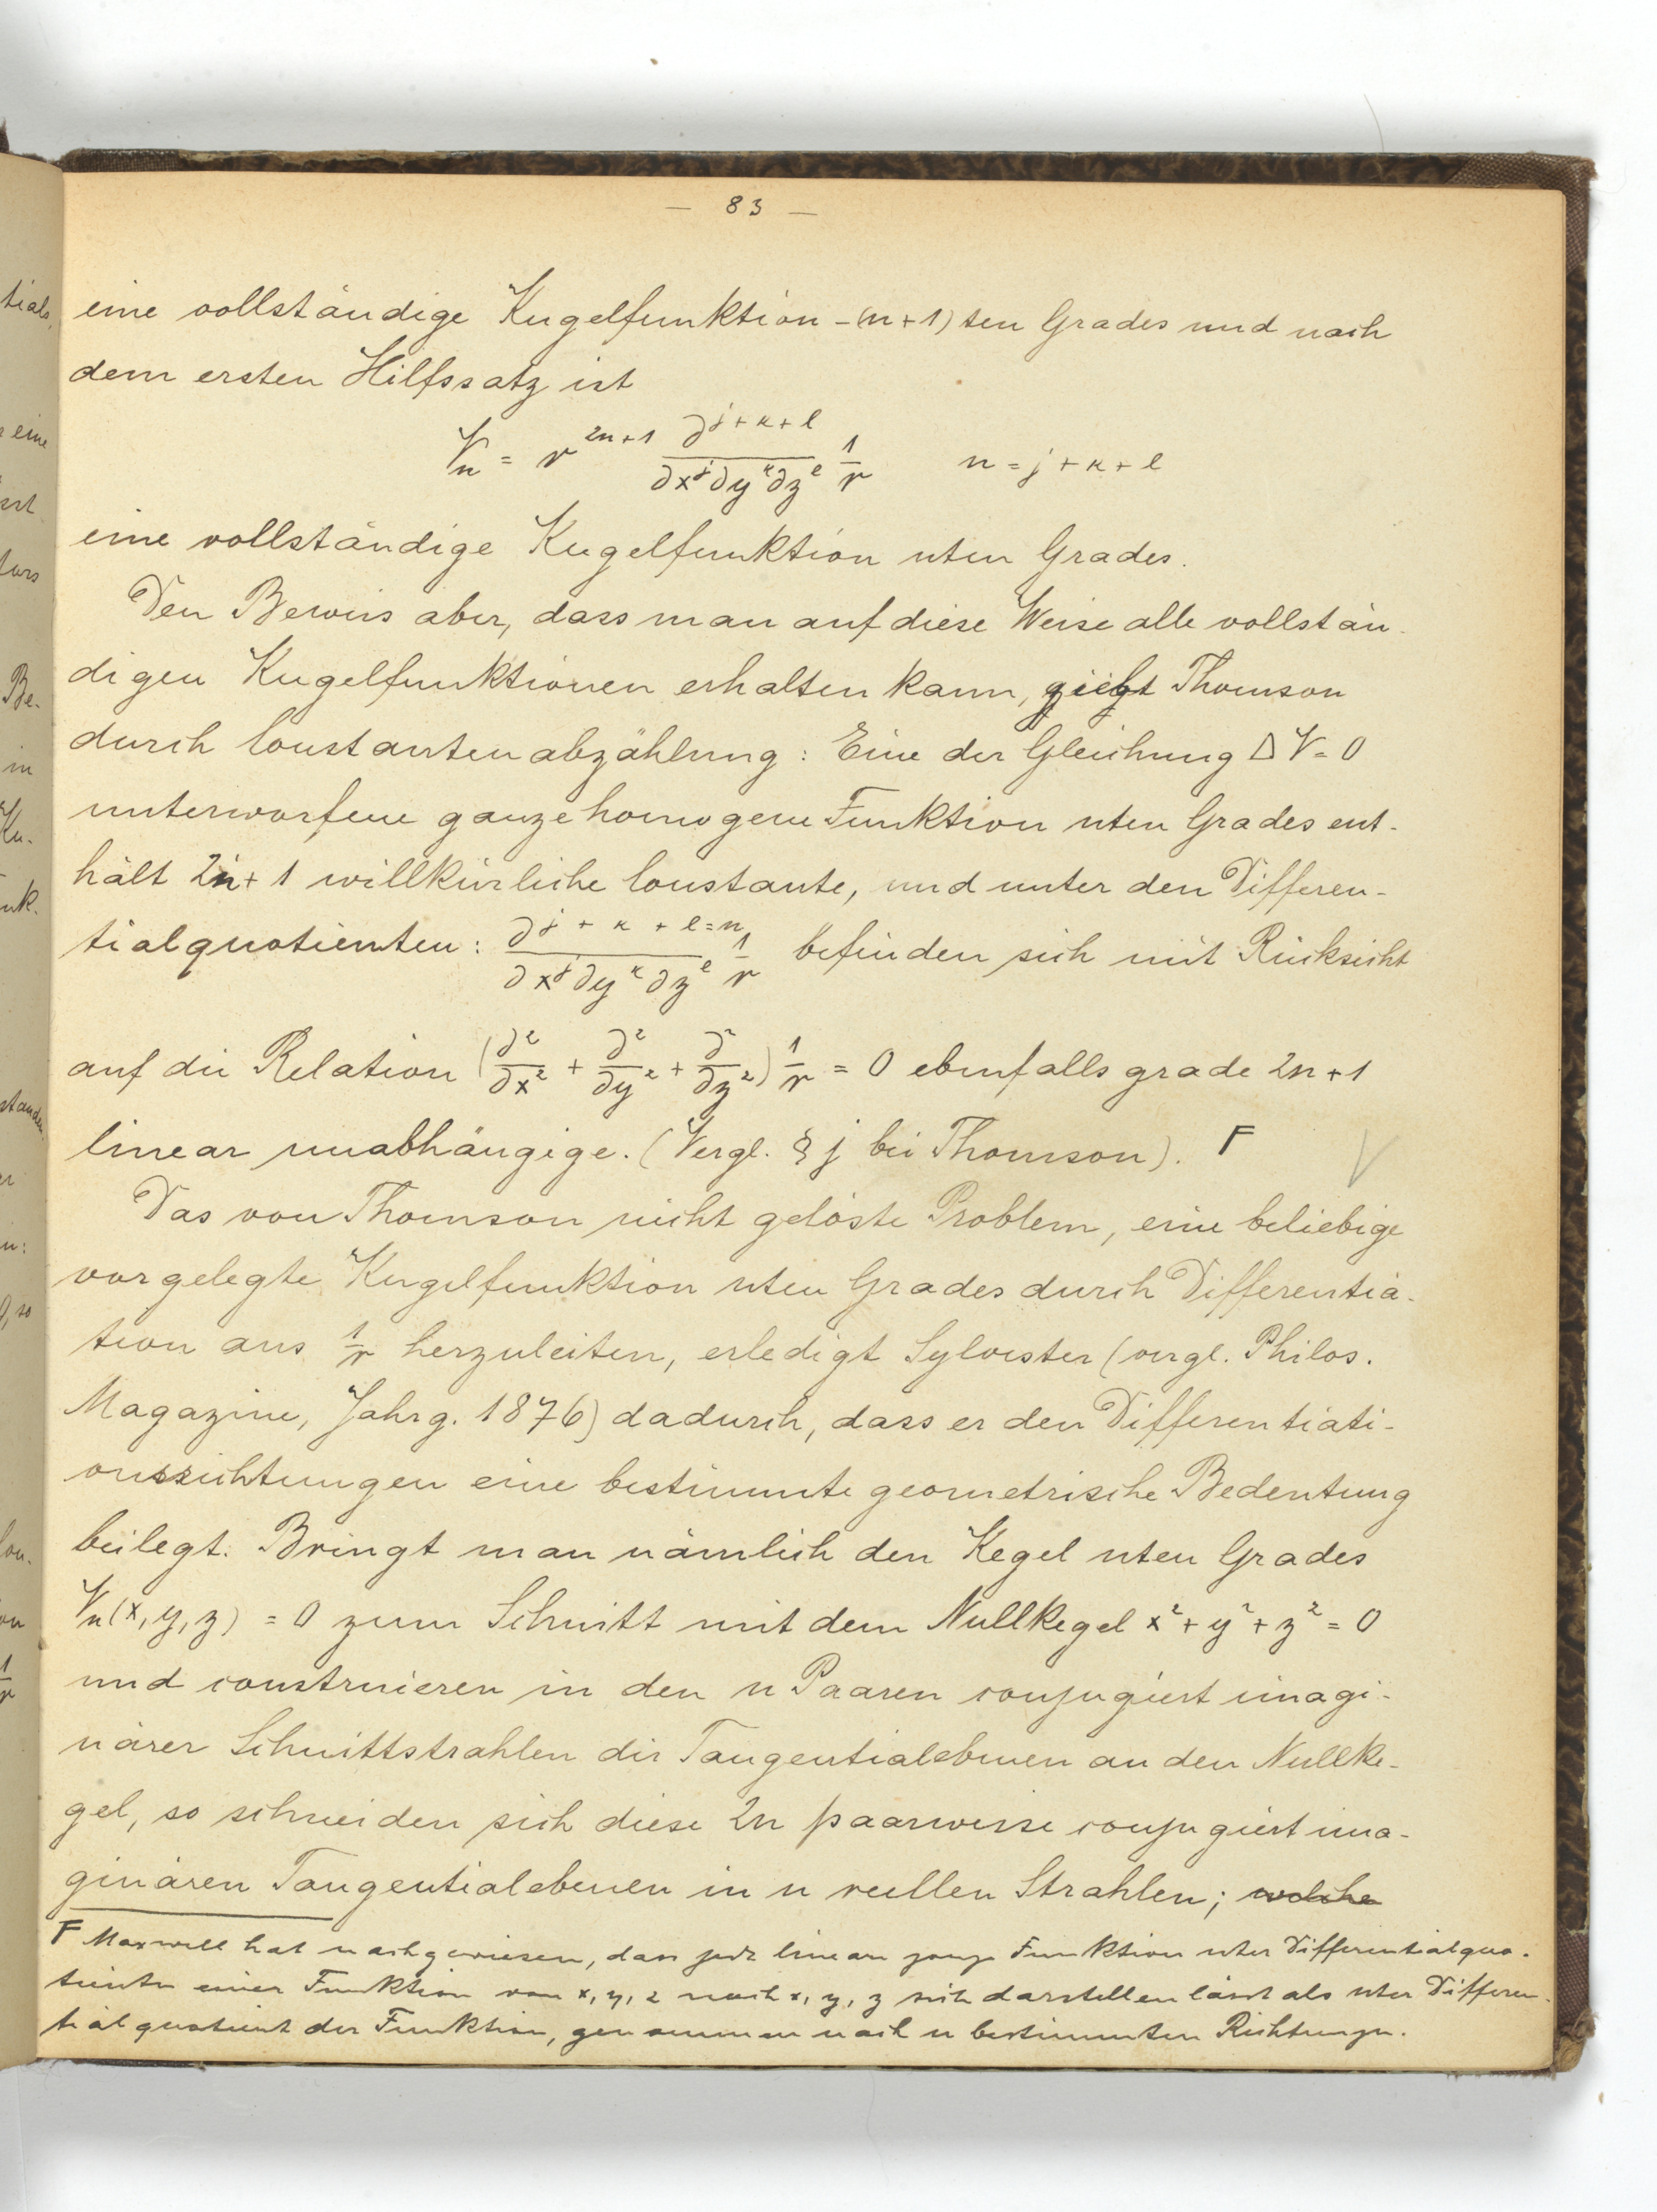 — 83 —
eine vollständige Kugelfunktion -(n+1)ten Grades und nach
dem ersten Hilfssatz ist
V_n = r^{2n+1} \frac{∂^{j+κ+l}}{∂x^j ∂y^κ ∂z^l} \frac{1}{r}   n = j+κ+l
eine vollständige Kugelfunktion nten Grades.
Den Beweis aber, dass man auf diese Weise alle vollstän-
digen Kugelfunktionen erhalten kann, giebt Thomson
durch Constantenabzählung: Eine der Gleichung Δ V = 0
unterworfene ganze homogene Funktion nten Grades ent-
hält 2n+1 willkürliche Constante, und unter den Differen-
tialquotienten: \frac{∂^{j+κ+l=n}}{∂x^j ∂y^κ ∂z^l} \frac{1}{r} befinden sich mit Rücksicht
auf die Relation (\frac{∂^2}{∂x^2} + \frac{∂^2}{∂y^2} + \frac{∂^2}{∂z^2}) \frac{1}{r} = 0 ebenfalls grade 2n+1
linear unabhängige. (Vergl. § j bei Thomson). F
Das von Thomson nicht gelöste Problem, eine beliebige
vorgelegte Kugelfunktion nten Grades durch Differentia-
tion aus \frac{1}{r} herzuleiten, erledigt Sylvester (vergl. Philos.
Magazine, Jahrg. 1876) dadurch, dass er den Differentiati-
onsrichtungen eine bestimmte geometrische Bedeutung
beilegt. Bringt man nämlich den Kegel nten Grades
V_n(x, y, z) = 0 zum Schnitt mit dem Nullkegel x^2 + y^2 + z^2 = 0
und construieren in den n Paaren conjugiert imagi-
närer Schnittstrahlen die Tangentialebenen an den Nullke-
gel, so schneiden sich diese 2n paarweise conjugiert ima-
ginären Tangentialebenen in n reellen Strahlen; welche
F Maxwell hat nachgewiesen, dass jede lineare ganze Funktion nter Differentialquo-
tienten einer Funktion von x, y, z nach x, y, z sich darstellen lässt als nter Differen-
tialquotient der Funktion, genommen nach n bestimmten Richtungen.